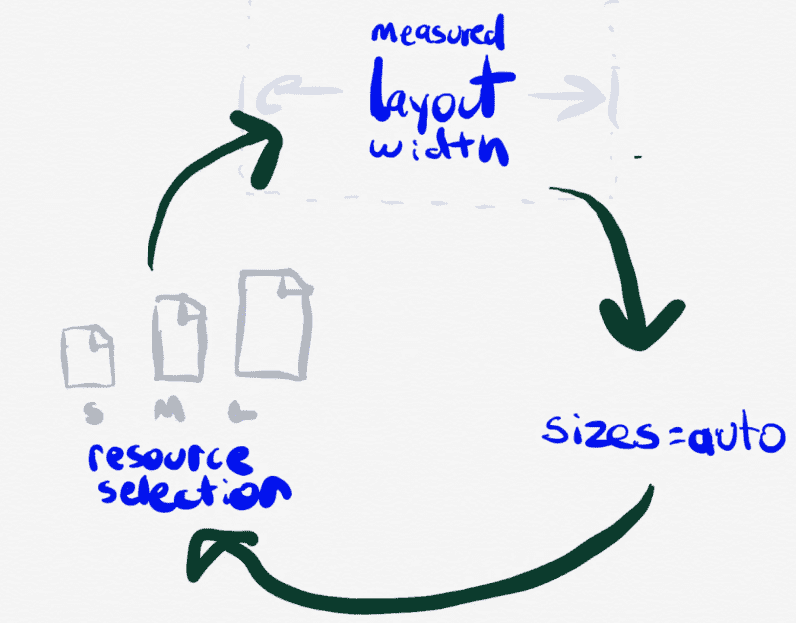 measured
layout
width
sizes=auto
S M L
resource
selection